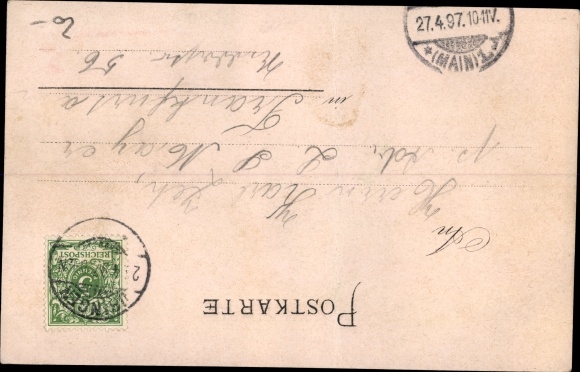 POSTKARTE
REICHSPOST
An
Herrn Karl
p. adr. L S Mayer
in Frankfurt a
56
27.4.97.10-11V.
*(MAIN)1.
20-